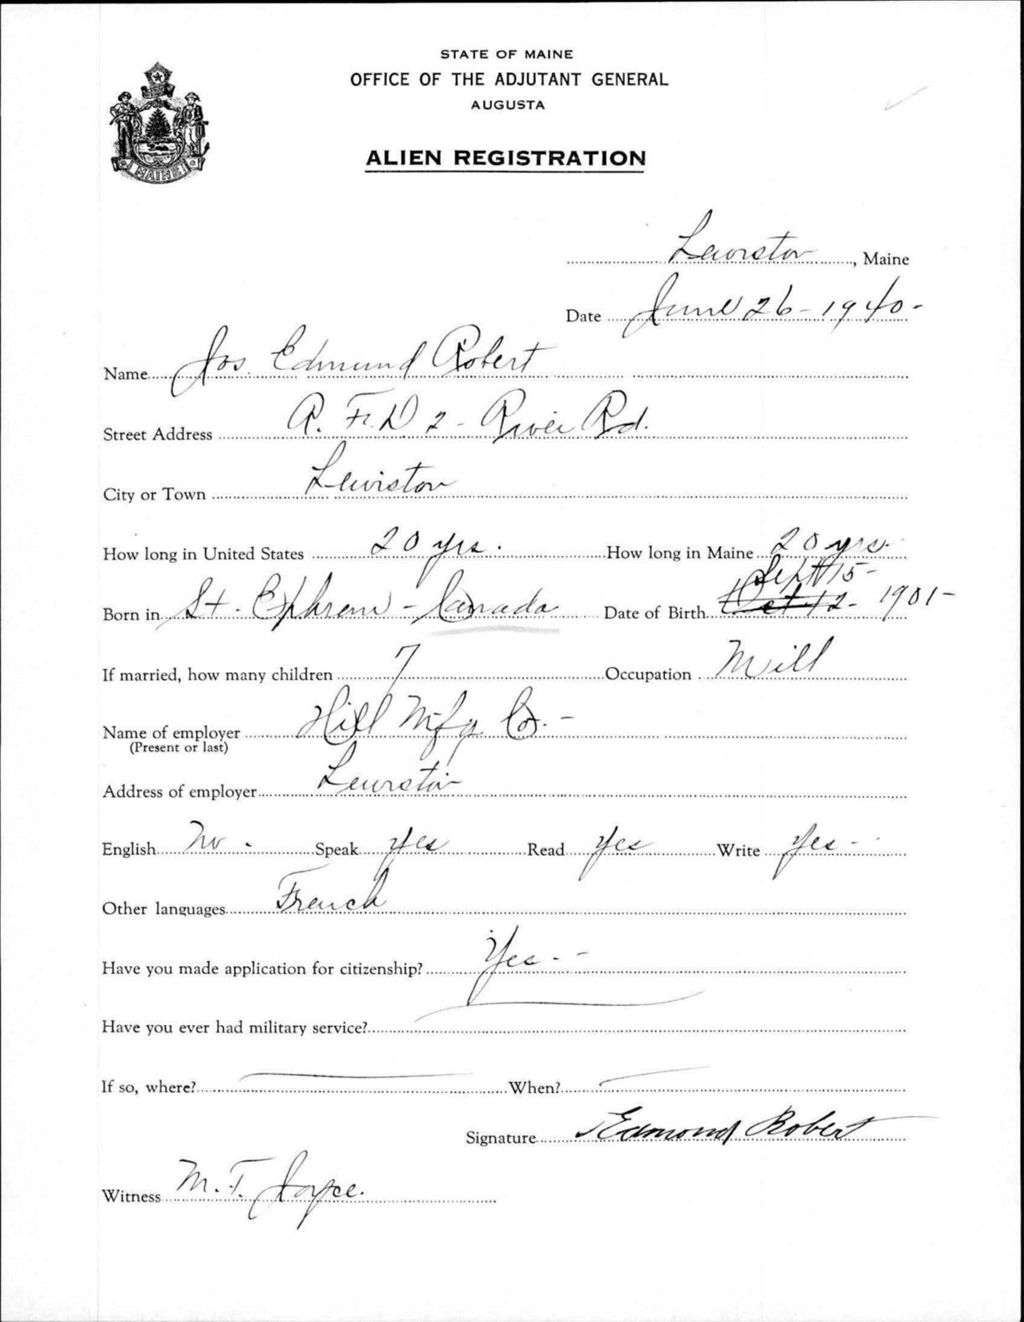 STATE OF MAINE
OFFICE OF THE ADJUTANT GENERAL
AUGUSTA
ALIEN REGISTRATION
MAINE
Lewiston, Maine
Date June 26-1940-
Name Jos. Edmund Robert
Street Address R.F.D 2 - River Rd.
City or Town Lewiston
How long in United States 20 yrs. How long in Maine 20 yrs.
Sept 15-
Born in St. Ephrem - Canada Date of Birth Oct 12- 1901-
If married, how many children 7 Occupation Mill
Name of employer Hill Mfg Co. -
(Present or last)
Address of employer Lewiston
English No. Speak yes Read yes Write yes -
Other languages French
Have you made application for citizenship? Yes - -
Have you ever had military service?
If so, where? When?
Signature Edmond Robert
Witness M. T. Joyce.